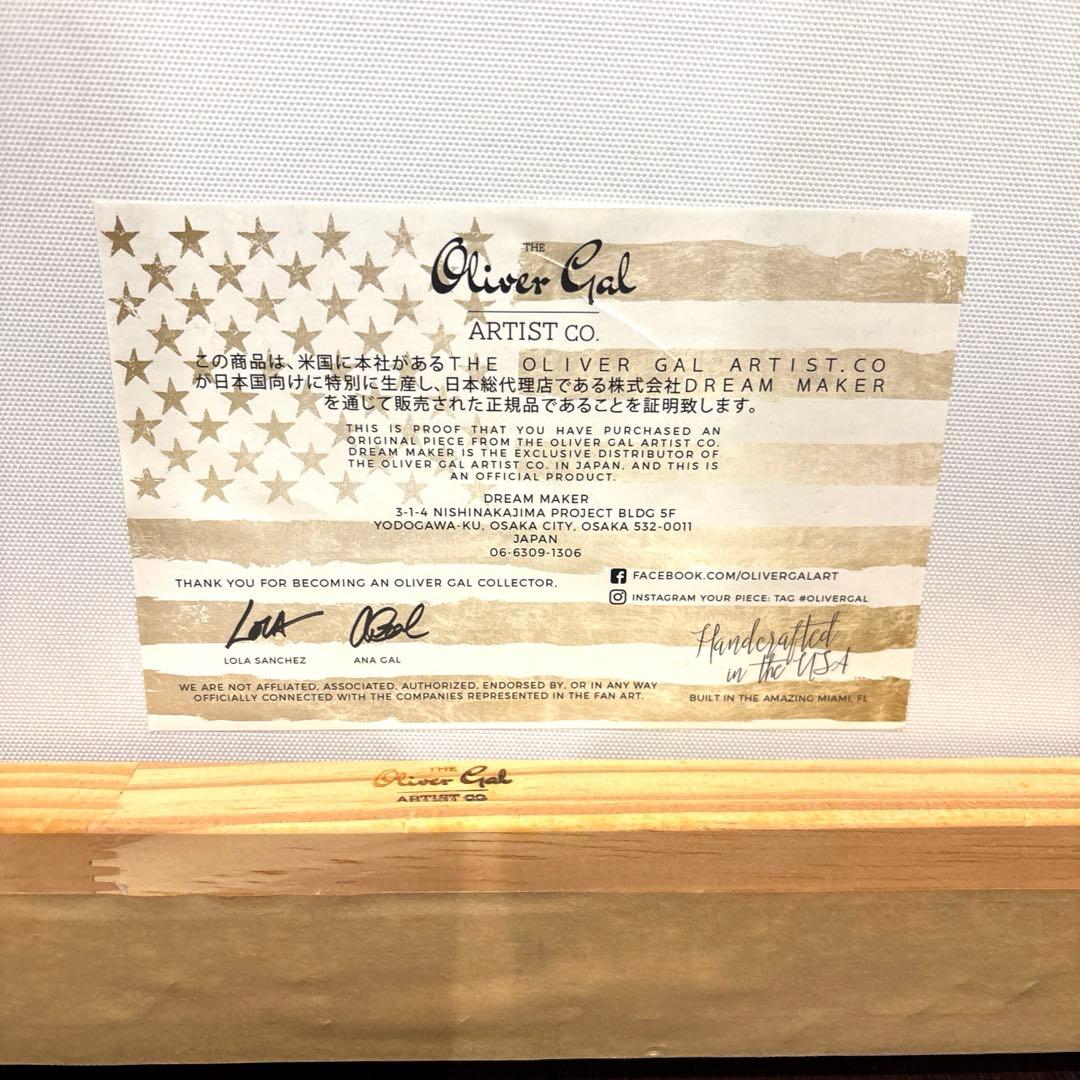 THE
Oliver Gal
ARTIST CO.
この商品は、米国に本社があるTHE OLIVER GAL ARTIST.CO
が日本国向けに特別に生産し、日本総代理店である株式会社DREAM MAKER
を通じて販売された正規品であることを証明致します。
THIS IS PROOF THAT YOU HAVE PURCHASED AN
ORIGINAL PIECE FROM THE OLIVER GAL ARTIST CO.
DREAM MAKER IS THE EXCLUSIVE DISTRIBUTOR OF
THE OLIVER GAL ARTIST CO. IN JAPAN. AND THIS IS
AN OFFICIAL PRODUCT.
DREAM MAKER
3-1-4 NISHINAKAJIMA PROJECT BLDG 5F
YODOGAWA-KU, OSAKA CITY, OSAKA 532-0011
JAPAN
06-6309-1306
THANK YOU FOR BECOMING AN OLIVER GAL COLLECTOR.
FACEBOOK.COM/OLIVERGALART
INSTAGRAM YOUR PIECE: TAG #OLIVERGAL
LOLA
LOLA SANCHEZ
ANA GAL
Handcrafted
in the USA
WE ARE NOT AFFLIATED, ASSOCIATED, AUTHORIZED, ENDORSED BY, OR IN ANY WAY
OFFICIALLY CONNECTED WITH THE COMPANIES REPRESENTED IN THE FAN ART.
BUILT IN THE AMAZING MIAMI, FL
THE
Oliver Gal
ARTIST CO.